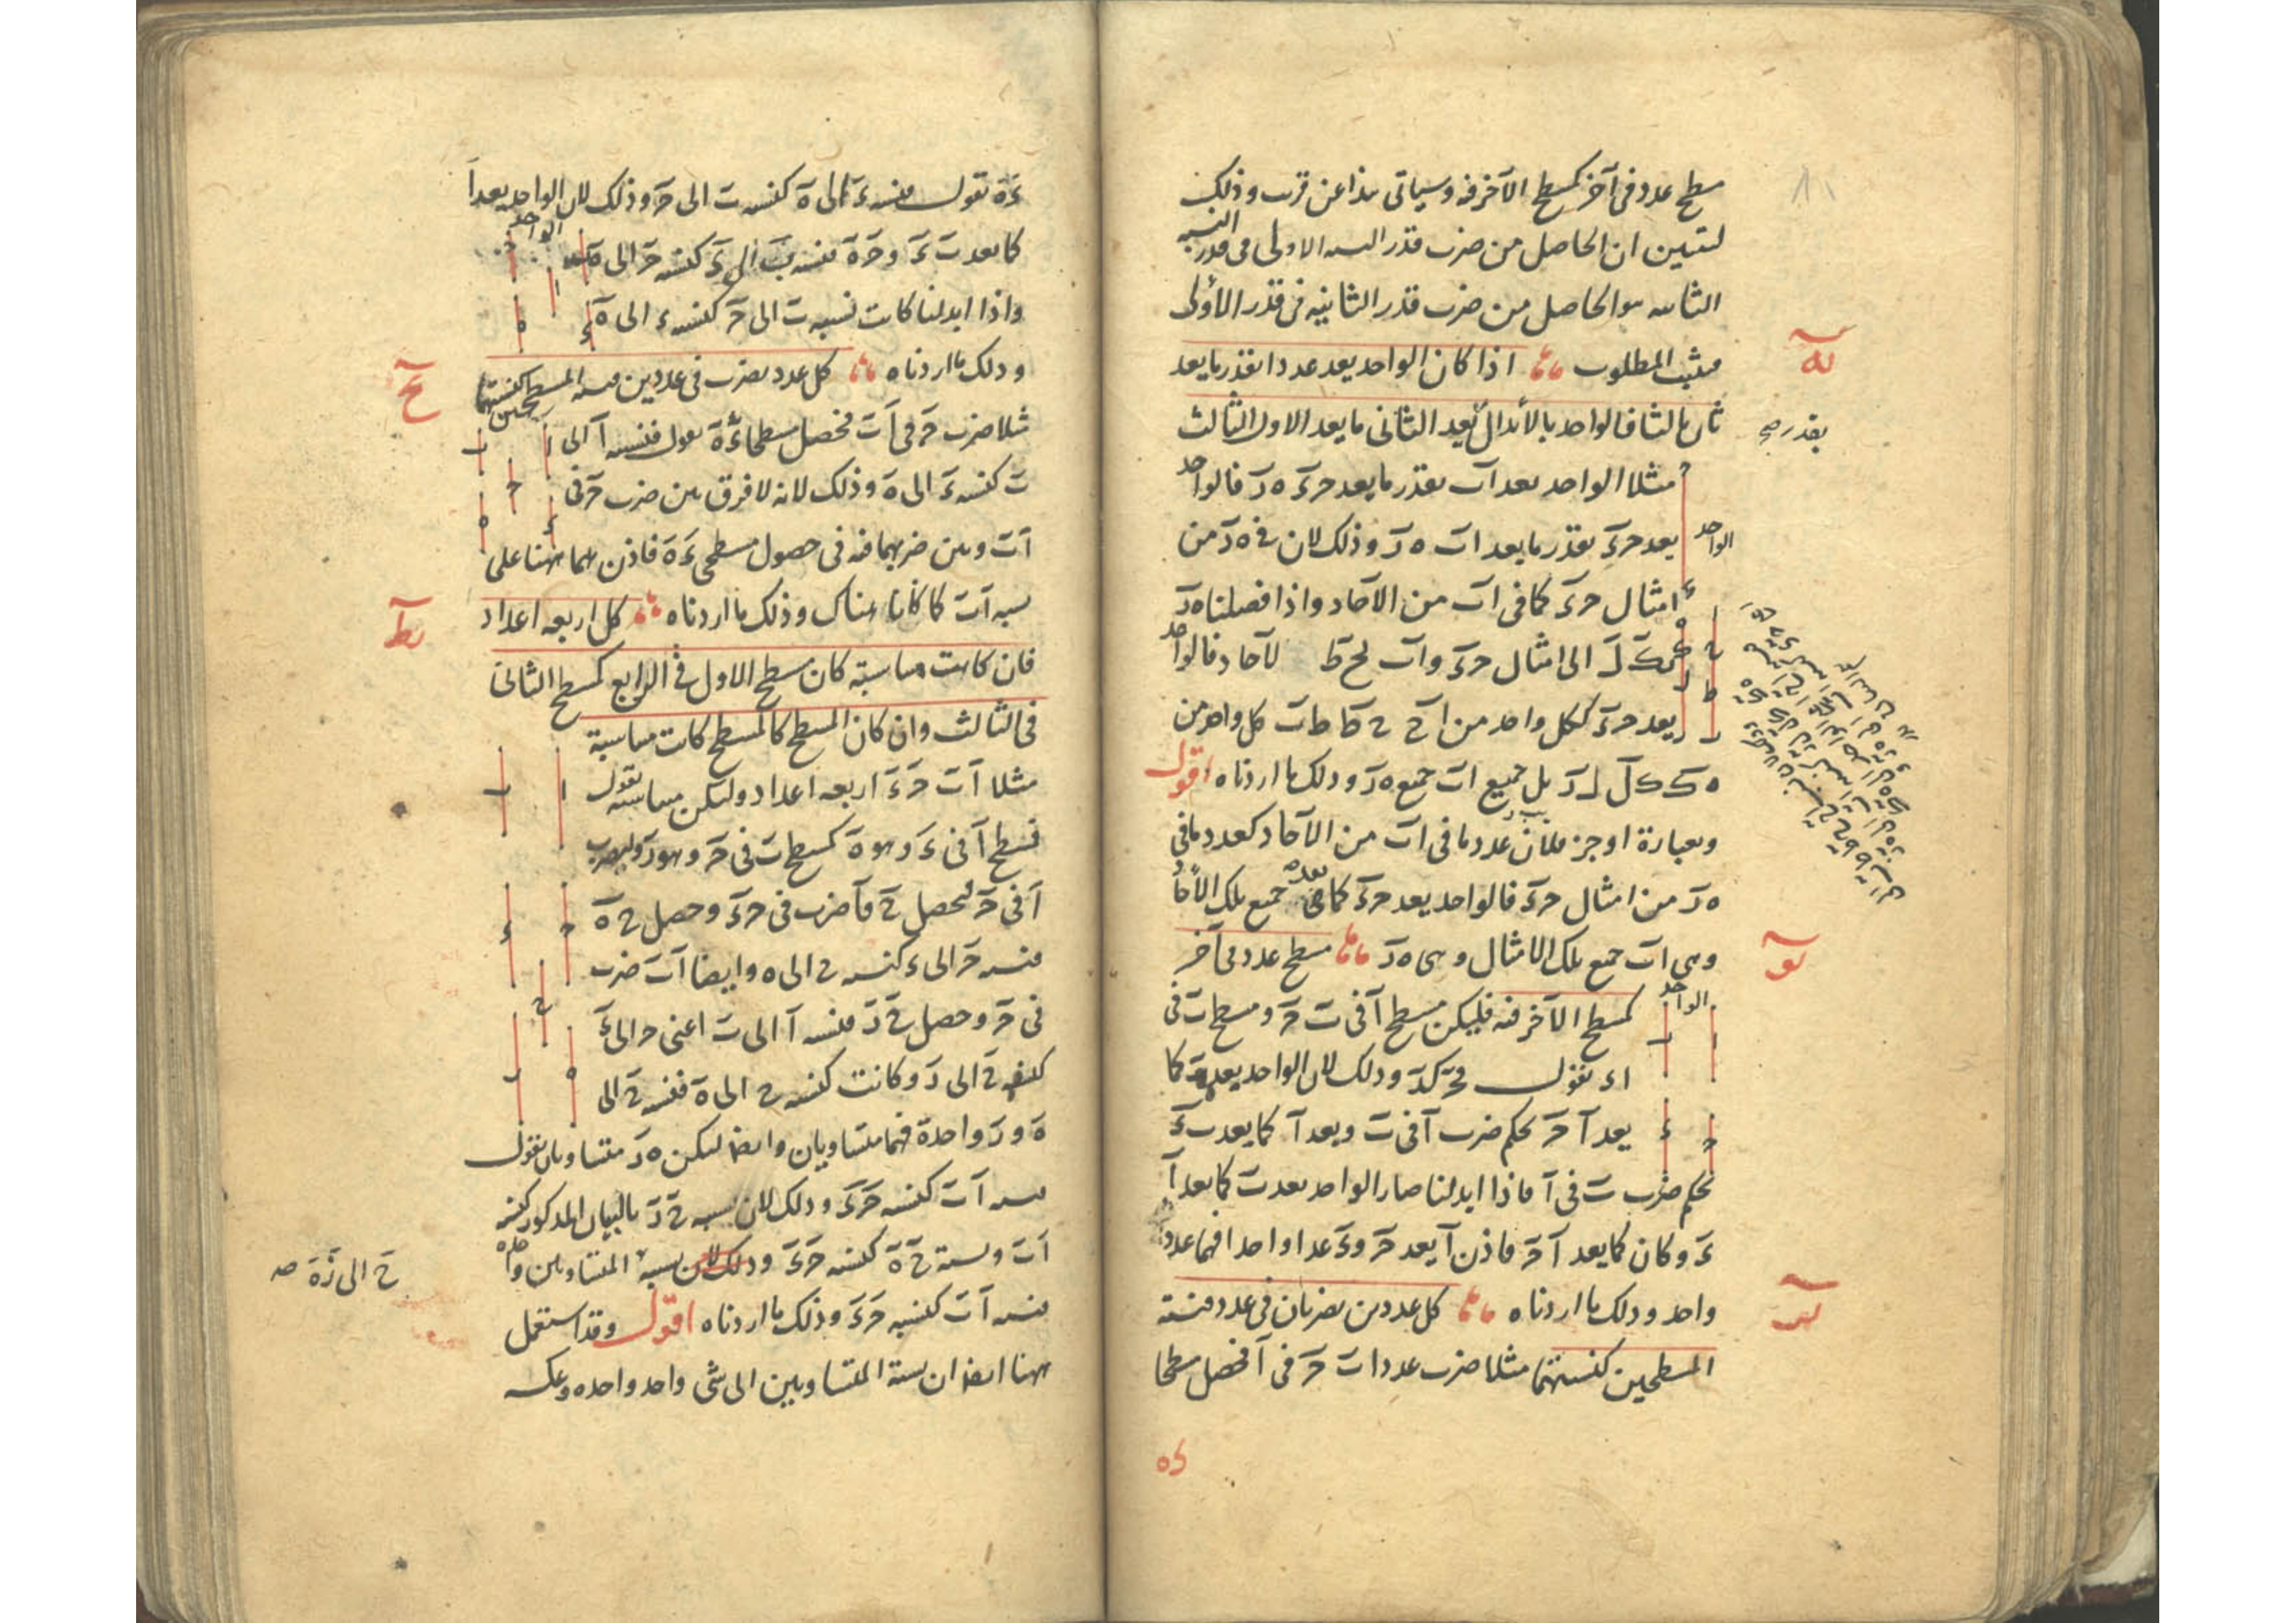 سطح عدد فى آخر كسطح الآخر فيه وسياتى هذا عن قرب وذلك
لتبين ان الحاصل من ضرب قدر النسبه الاولى فى قدر النسبه
الثانيه هو الحاصل من ضرب قدر الثانيه فى قدر الأولى
فيثبت المطلوب اذا كان الواحد يعد عددا بقدر ما يعد
ثان ثالثا فالواحد بالأبدال يعد الثانى ما يعد الاول الثالث
بقدر صح
له
مثلا الواحد يعد اب بقدر ما يعد حء ه ر فالواحد
يعد حء بقدر ما يعد اب ه ر وذلك لان فى ه ر من
الواحد
امثال حء كما فى اب من الآحاد واذا فصلنا ه ر
الى امثال حء واب لح ط لآحاد فالواحد
يعد حء ككل واحد من اح ح ط ط ب كل واحد من
ه ك ك ل ل ر بل جميع اب جميع ه ر وذلك ما اردناه اقول
وبعبارة اوجز فلان عدد ما فى اب من الآحاد كعدد ما فى
ه ر من امثال حء فالواحد يعد حء كما يعد جميع تلك الآحاد
وهى اب جميع تلك الامثال وهى ه ر سطح عدد فى آخر
يو
كسطح الآخر فيه فليكن سطح ا فى ب ح وسطح ب فى
الواحد
ا ء نقول فح كء وذلك لان الواحد يعد ب كما
يعد ا ح بحكم ضرب ا فى ب ويعد ا كما يعد ب ء
بحكم ضرب ب فى ا فاذا ابدلنا صار الواحد يعد ب كما يعد ا
ء وكان كما يعد ا ح فاذن ا يعد ح وء عدا واحدا فهما عدد
واحد وذلك ما اردناه كل عددين يضربان فى عدد فنسبة
ير
المسطحين كنسبتهما مثلا ضرب عددا ب ح فى ا فحصل سطحا
ء ه نقول فنسبه ء الى ه كنسبه ب الى ح وذلك لان الواحد يعد ا
كما يعد ب ء و ح ه فنسبه ب الى ء كنسبه ح الى ه
الواحد
واذا ابدلنا كانت نسبه ب الى ح كنسبه ء الى ه
وذلك ما اردناه كل عدد يضرب فى عددين فنسبه المسطحين كنسبتهما
يح
مثلا ضرب ح فى ا ب فحصل سطحا ء ه نقول فنسبه ا الى
ب كنسبه ء الى ه وذلك لانه لا فرق بين ضرب ح فى
ا ب وبين ضربهما فيه فى حصول مسطحى ء ه فاذن هما ههنا على
نسبه ا ب كما كانا هناك وذلك ما اردناه كل اربعه اعداد
يط
فان كانت متناسبة كان مسطح الاول فى الرابع كمسطح الثانى
فى الثالث وان كان المسطح كالمسطح كانت متناسبة
مثلا ا ب ح ء اربعه اعداد وليكن متناسبه نقول
فسطح ا فى ء وهو ه كسطح ب فى ح وهو ر وليضرب
ا فى ح ليحصل ح فا ضرب فى ح ء وحصل ح ه
فنسبه ح الى ء كنسبه ح الى ه وايضا ا ب ضرب
فى ح وحصل ح ر فنسبه ا الى ب اعنى ح الى ء
كنسبه ح الى ر وكانت كنسبه ح الى ه فنسبه ح الى
ه و ر واحدة فهما متساويان وايضا ليكن ه ر متساويان نقول
نسبه ا ب كنسبه ح ء وذلك لان نسبه ح ر بالبيان المذكور كنسبه
ا ب ونسبة ح ه كنسبه ح ء وذلك لان نسبه المتساويين واحده
ح الى ر ه صه
فنسبه ا ب كنسبه ح ء وذلك ما اردناه اقول وقد استعمل
ههنا ايضا ان نسبة المتساويين الى شى واحد واحده وعكسه